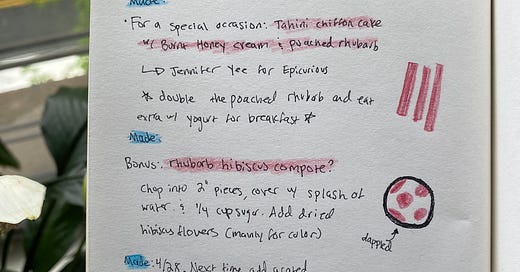 Made:
• For a special occasion: Tahini chiffon cake
w/ Burnt Honey cream & poached rhubarb
↳ Jennifer Yee for Epicurious
* double the poached rhubarb and eat
extra w/ yogurt for breakfast *
Made:
Bonus: rhubarb hibiscus compote?
Chop into 2" pieces, cover w/ splash of
water & 1/4 cup sugar. Add dried
hibiscus flowers (mainly for color)
dappled
Made: 4/28. Next time add grated